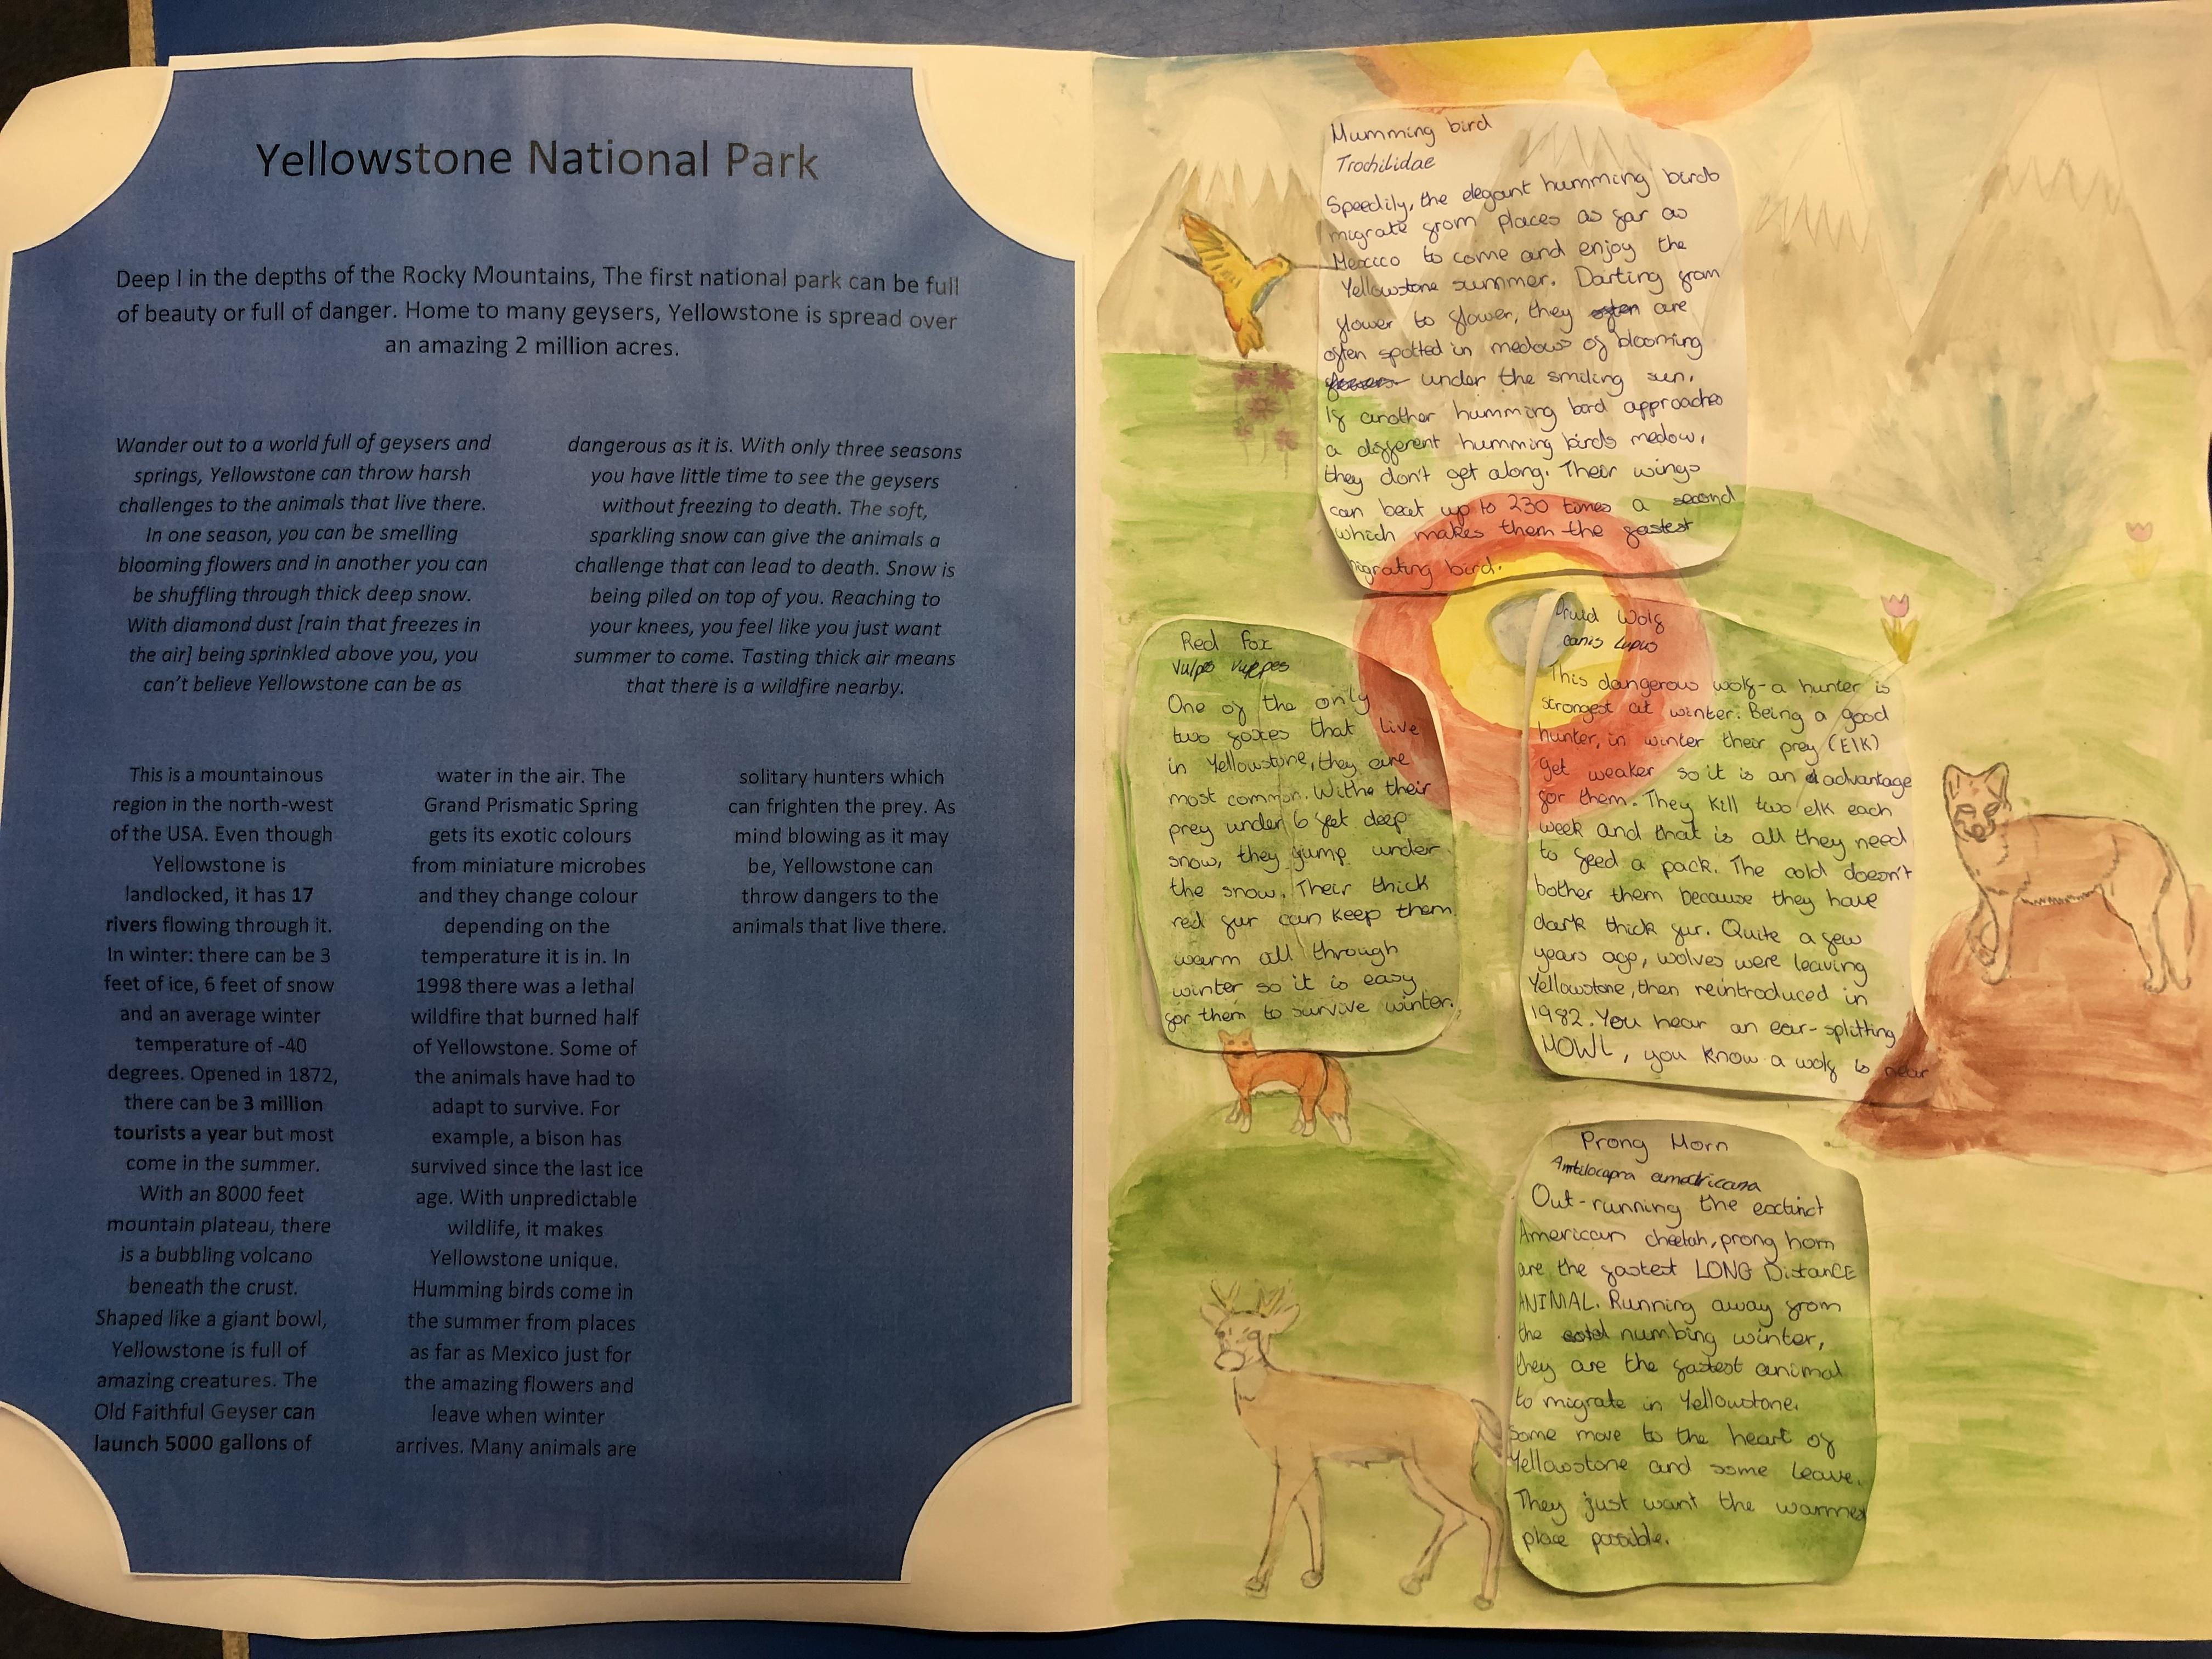 Yellowstone National Park
Deep I in the depths of the Rocky Mountains, The first national park can be full
of beauty or full of danger. Home to many geysers, Yellowstone is spread over
an amazing 2 million acres.
Wander out to a world full of geysers and
springs, Yellowstone can throw harsh
challenges to the animals that live there.
In one season, you can be smelling
blooming flowers and in another you can
be shuffling through thick deep snow.
With diamond dust [rain that freezes in
the air] being sprinkled above you, you
can't believe Yellowstone can be as
dangerous as it is. With only three seasons
you have little time to see the geysers
without freezing to death. The soft,
sparkling snow can give the animals a
challenge that can lead to death. Snow is
being piled on top of you. Reaching to
your knees, you feel like you just want
summer to come. Tasting thick air means
that there is a wildfire nearby.
This is a mountainous
region in the north-west
of the USA. Even though
Yellowstone is
landlocked, it has 17
rivers flowing through it.
In winter: there can be 3
feet of ice, 6 feet of snow
and an average winter
temperature of -40
degrees. Opened in 1872,
there can be 3 million
tourists a year but most
come in the summer.
With an 8000 feet
mountain plateau, there
is a bubbling volcano
beneath the crust.
Shaped like a giant bowl,
Yellowstone is full of
amazing creatures. The
Old Faithful Geyser can
launch 5000 gallons of
water in the air. The
Grand Prismatic Spring
gets its exotic colours
from miniature microbes
and they change colour
depending on the
temperature it is in. In
1998 there was a lethal
wildfire that burned half
of Yellowstone. Some of
the animals have had to
adapt to survive. For
example, a bison has
survived since the last ice
age. With unpredictable
wildlife, it makes
Yellowstone unique.
Humming birds come in
the summer from places
as far as Mexico just for
the amazing flowers and
leave when winter
arrives. Many animals are
solitary hunters which
can frighten the prey. As
mind blowing as it may
be, Yellowstone can
throw dangers to the
animals that live there.
Humming bird
Trochilidae
Speedily, the elegant humming birds
migrate from places as far as
Mexico to come and enjoy the
Yellowstone summer. Darting from
flower to flower, they often are
often spotted in medows of blooming
under the smiling sun.
If another humming bird approaches
a different humming birds medow,
they don't get along. Their wings
can beat up to 230 times a second
which makes them the fastest
migrating bird.
Red Fox
Vulpes Vulpes
One of the only
two foxes that live
in Yellowstone, they are
most common. Withe their
prey under 6 feet deep
snow, they jump under
the snow. Their thick
red fur can keep them
warm all through
winter so it is easy
for them to survive winter.
Druid Wolf
canis Lupus
This dangerous wolf-a hunter is
strongest at winter. Being a good
hunter, in winter their prey (Elk)
get weaker so it is an advantage
for them. They kill two elk each
week and that is all they need
to feed a pack. The cold doesn't
bother them because they have
dark thick fur. Quite a few
years ago, wolves were leaving
Yellowstone, then reintroduced in
1982. You hear an ear-splitting
HOWL, you know a wolf is near
Prong Horn
Antilocapra americana
Out-running the exctinct
American cheetah, prong horn
are the fastest LONG DistanCE
ANIMAL. Running away from
the cold numbing winter,
they are the fastest animal
to migrate in Yellowstone.
Some move to the heart of
Yellowstone and some leave.
They just want the warmest
place possible.